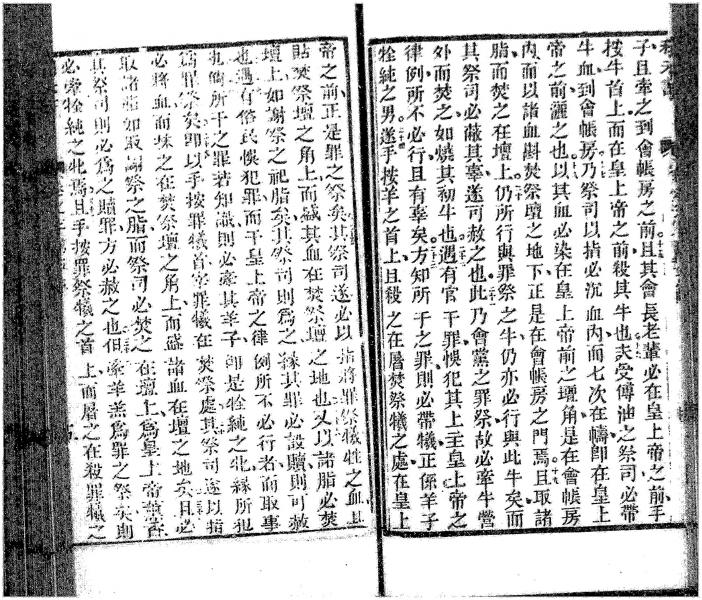 子且牽之到會帳房之前且其會長老輩必在皇上帝之前手
按牛首上而在皇上帝之前殺其牛也夫受傅油之祭司必帶
牛血到會帳房乃祭司以指必沉血內而七次在幬即在皇上
帝之前灑之也以其血必染在皇上帝前之壇角是在會帳房
內而以諸血斟焚祭壇之地下正是在會帳房之門焉且取諸
脂而焚之在壇上仍所行與罪祭之牛仍亦必行與此牛矣而
其祭司必蔽其辜遂可赦之也此乃會黨之罪祭故必牽牛營
外而焚之如燒其初牛也遇有官干罪悞犯其上主皇上帝之
律例所不必行且有辜矣方知所干之罪則必帶犧正係羊子
牷純之男遂手按羊之首上且殺之在屠焚祭犧之處在皇上
帝之前正是罪之祭矣其祭司遂必以指將罪祭犧牲之血且
貼焚祭壇之角上而盛其血在焚祭壇之地也又以諸脂必焚
壇上如謝祭之祀脂矣其祭司則為之緣其罪必設贖則可赦
也遇有俗民悞犯罪而干皇上帝之律例所不必行者而取事
所干之罪若知識則必牽其羊子即是牷純之牝緣所犯
罪祭矣即以手按罪祭犧首宰罪犧在焚祭處其祭司遂以指
必將血而咊之在焚祭壇之角上而盛諸血在壇之地矣且必
取諸脂如取謝祭之脂而祭司必焚之在壇上為皇上帝馨香
其祭司則必為之贖罪方必赦之也但牽羊羔為罪之祭矣則
必牽牷純之牝焉且手按罪祭犧之首上而屠之在殺罪犧之